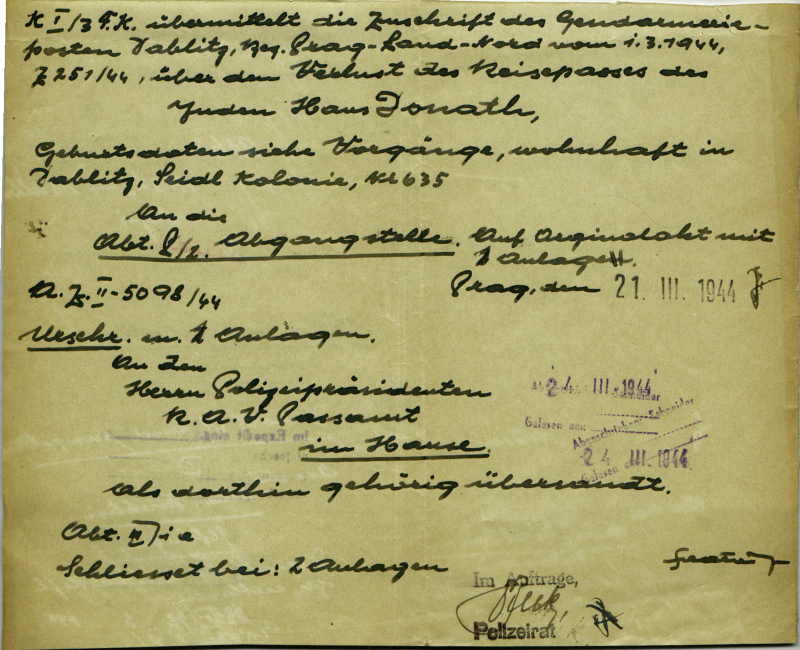 K I/3 F.K. übermittelt die Zuschrift des Gendarmerie-
posten Dablitz, Bez. Prag-Land-Nord vom 1.3.1944,
Z 251/44, über den Verlust des Reisepasses des
Juden Hans Donath,
Geburtsdaten siehe Vorgänge, wohnhaft in
Dablitz, Seidl Kolonie, Nr 635
An die
Abt. P/2. Abgangstelle. Auf Orginalakt mit
1 Anlagen.
Prag, den 21. III. 1944
A.Z. II-5098/44
Urschr. m. 1 Anlagen.
An den
Herrn Polizeipräsidenten
K. A. V. Passamt
im Hause.
24. III. 1944
Gelesen am:
Abgeschrieben: Schneider
24. III. 1944
Gelesen
als dorthin gehörig übersandt.
Abt. II
Schliesset bei: 2 Anlagen
Im Auftrage,
Polizeirat